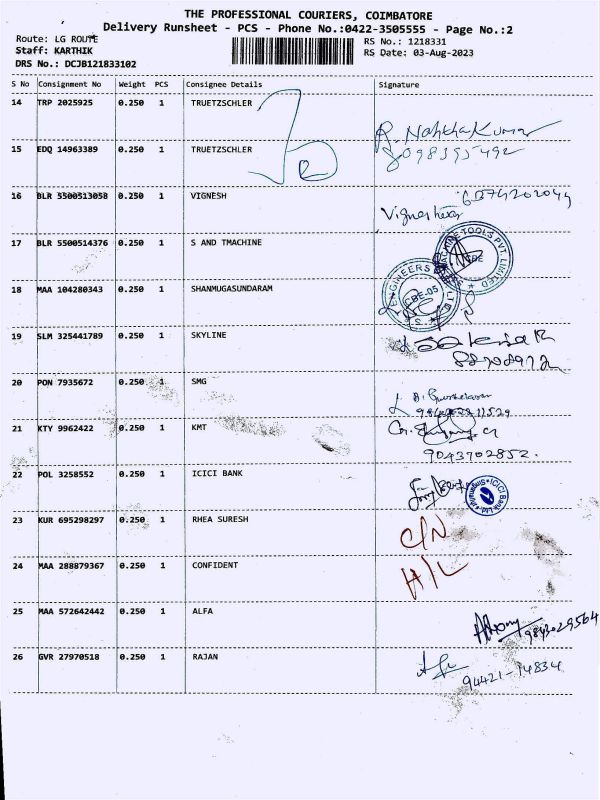 THE PROFESSIONAL COURIERS, COIMBATORE
Delivery Runsheet - PCS - Phone No.:0422-3505555 - Page No.:2
Route: LG ROUTE
RS No.: 1218331
Staff: KARTHIK
RS Date: 03-Aug-2023
DRS No.: DCJB121833102
S No Consignment No Weight PCS Consignee Details Signature
14 TRP 2025925 0.250 1 TRUETZSCHLER
15 EDQ 14963389 0.250 1 TRUETZSCHLER
16 BLR 5500513058 0.250 1 VIGNESH
17 BLR 5500514376 0.250 1 S AND TMACHINE
18 MAA 104280343 0.250 1 SHANMUGASUNDARAM
19 SLM 325441789 0.250 1 SKYLINE
20 PON 7935672 0.250 1 SMG
21 KTY 9962422 0.250 1 KMT
9043702852.
22 POL 3258552 0.250 1 ICICI BANK
ICICI Bank Ltd
23 KUR 695298297 0.250 1 RHEA SURESH C/N
24 MAA 288879367 0.250 1 CONFIDENT H/L
25 MAA 572642442 0.250 1 ALFA
9843029564
26 GVR 27970518 0.250 1 RAJAN
94421-14834